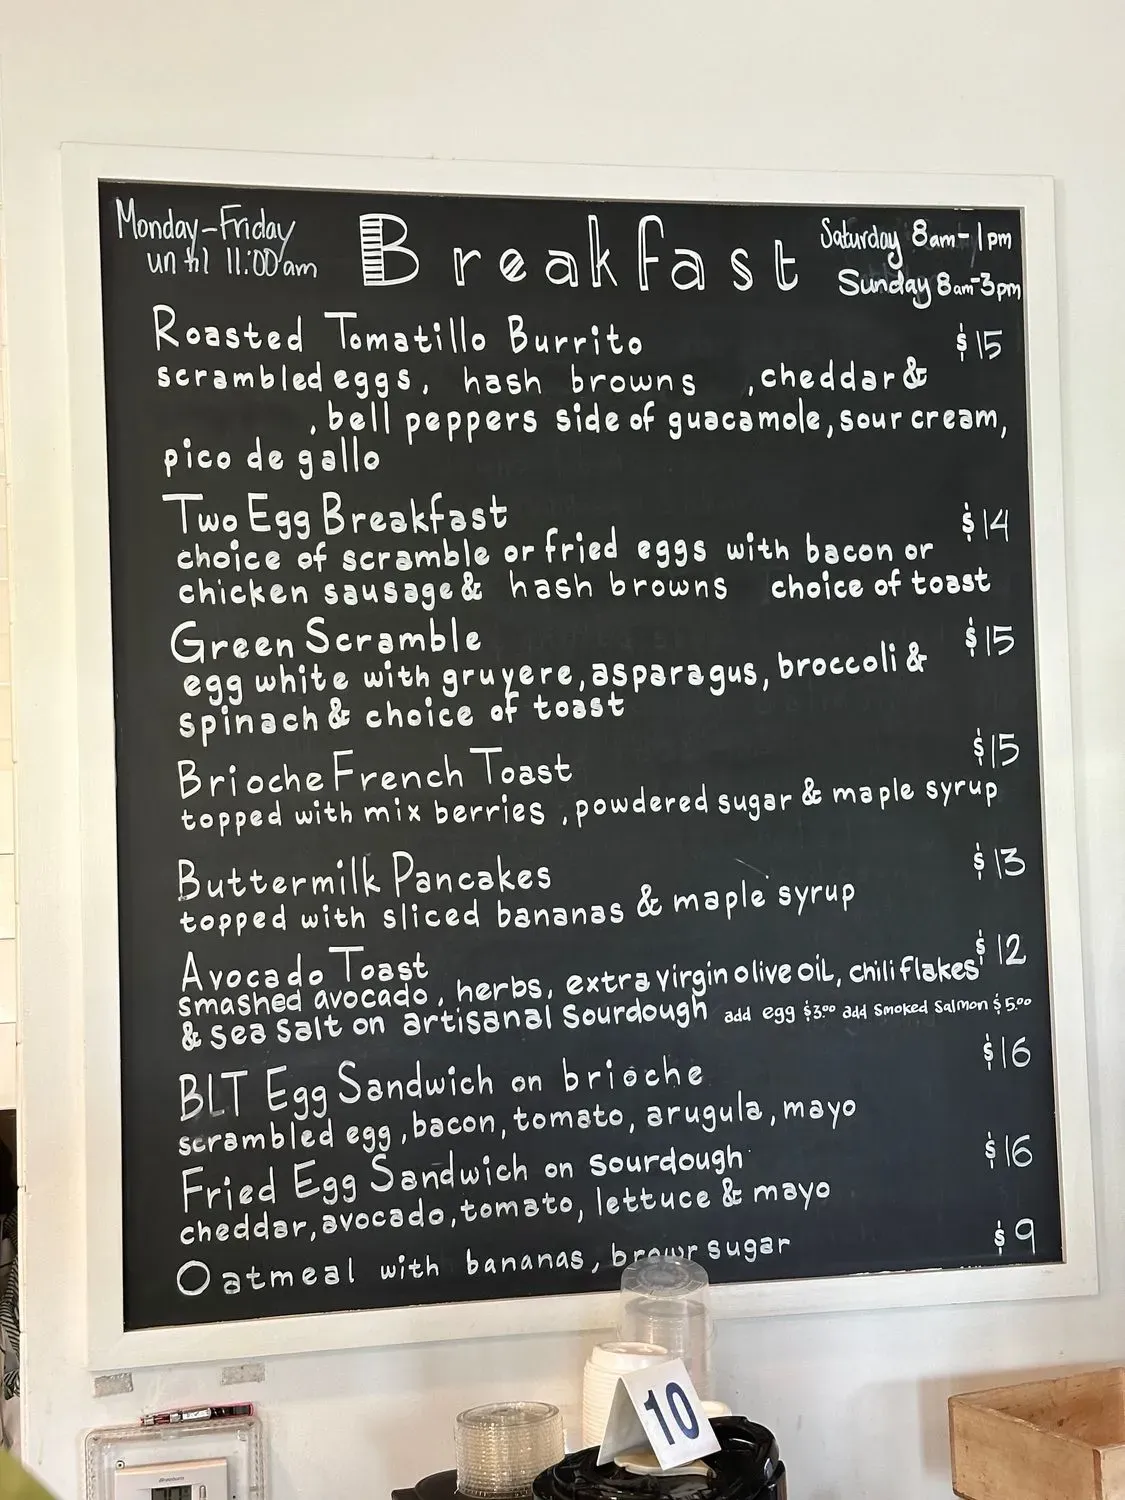 Monday-Friday
until 11:00 am
Breakfast
Saturday 8am-1pm
Sunday 8am-3pm
Roasted Tomatillo Burrito $15
scrambled eggs, hash browns , cheddar &
, bell peppers side of guacamole, sour cream,
pico de gallo
Two Egg Breakfast $14
choice of scramble or fried eggs with bacon or
chicken sausage & hash browns choice of toast
Green Scramble $15
egg white with gruyere, asparagus, broccoli &
spinach & choice of toast
Brioche French Toast $15
topped with mix berries, powdered sugar & maple syrup
Buttermilk Pancakes $13
topped with sliced bananas & maple syrup
Avocado Toast $12
smashed avocado, herbs, extra virgin olive oil, chili flakes
& sea salt on artisanal sourdough add egg $3.00 add smoked salmon $5.00
BLT Egg Sandwich on brioche $16
scrambled egg, bacon, tomato, arugula, mayo
Fried Egg Sandwich on sourdough $16
cheddar, avocado, tomato, lettuce & mayo
Oatmeal with bananas, brown sugar $9
10